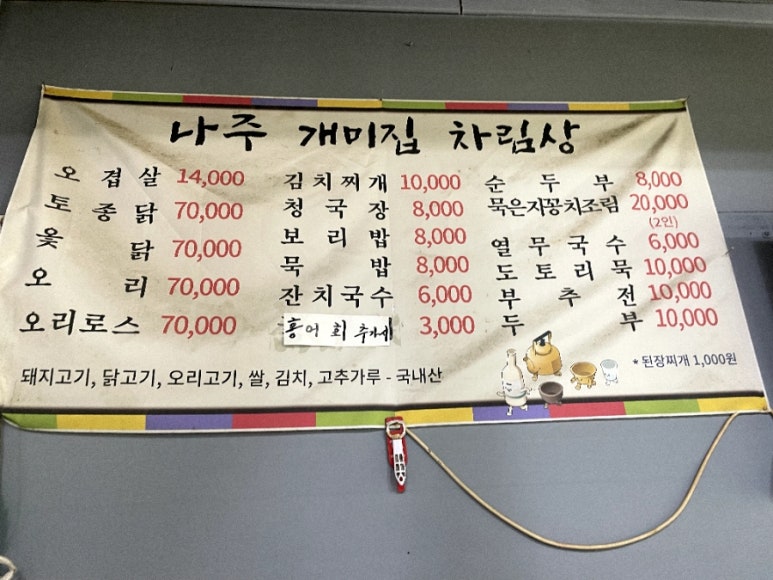 나주 개미집 차림상
오겹살 14,000
토종닭 70,000
옻닭 70,000
오리 70,000
오리로스 70,000
김치찌개 10,000
청국장 8,000
보리밥 8,000
묵밥 8,000
잔치국수 6,000
홍어회 추가시 3,000
순두부 8,000
묵은지꽁치조림 20,000
(2인)
열무국수 6,000
도토리묵 10,000
부추전 10,000
두부 10,000
* 된장찌개 1,000원
돼지고기, 닭고기, 오리고기, 쌀, 김치, 고추가루 - 국내산